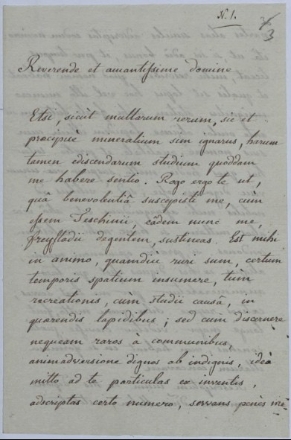 N. 1.
3
Reverende et amantissime domine
Etsi, sicut multarum rerum, sic et
præcipue mineralium sum ignarus, harum
tamen discendarum studium quoddam
me habere sentio. Rogo ergo te ut,
quâ benevolentiâ suscepisti me, cum
essem Teschinii eâdem nunc me,
Freystadii degentem, sustineas. Est mihi
in animo, quamdiu ruri sum, certum
temporis spatium insumere, tum
recreationis, cum studii causâ, in
quærendis lapidibus; sed cum discernere
nequeam raros a communibus,
animadversione dignos ab indignis, ideo
mitto ad te particulas ex inventis,
adscriptas certo numero, servans penes me